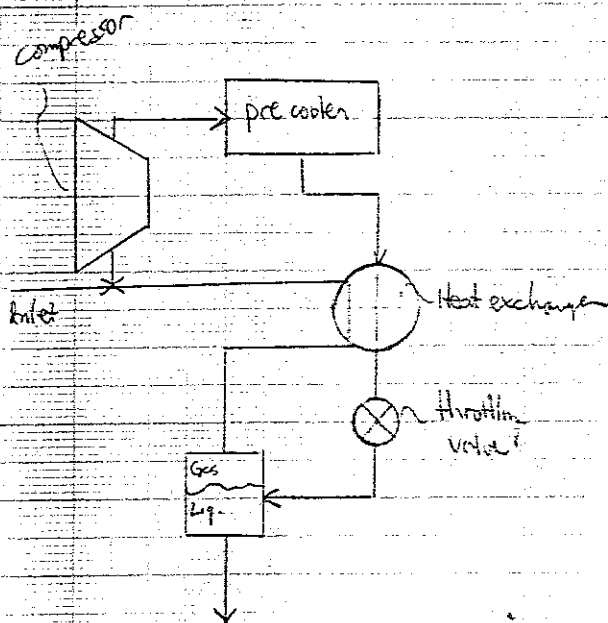 compressor
pre cooler
Inlet
Heat exchanger
throttling
valve
Gas
Liq.